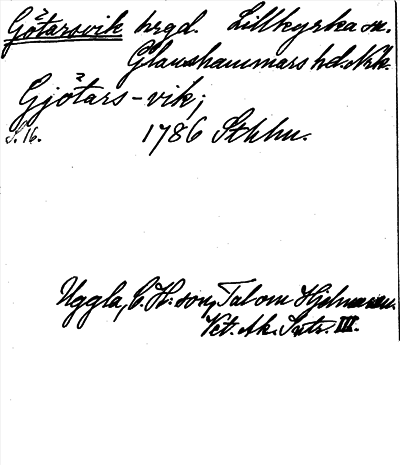 Götarsvik hrgd. Lillkyrka sn.
Glanshammars hd. Nke.
Gjötars-vik;
S. 16. 1786 Sthlm.
Uggla, C. H:son, Tal om Hjelmaren.
Vet. Ak. Intr. III.